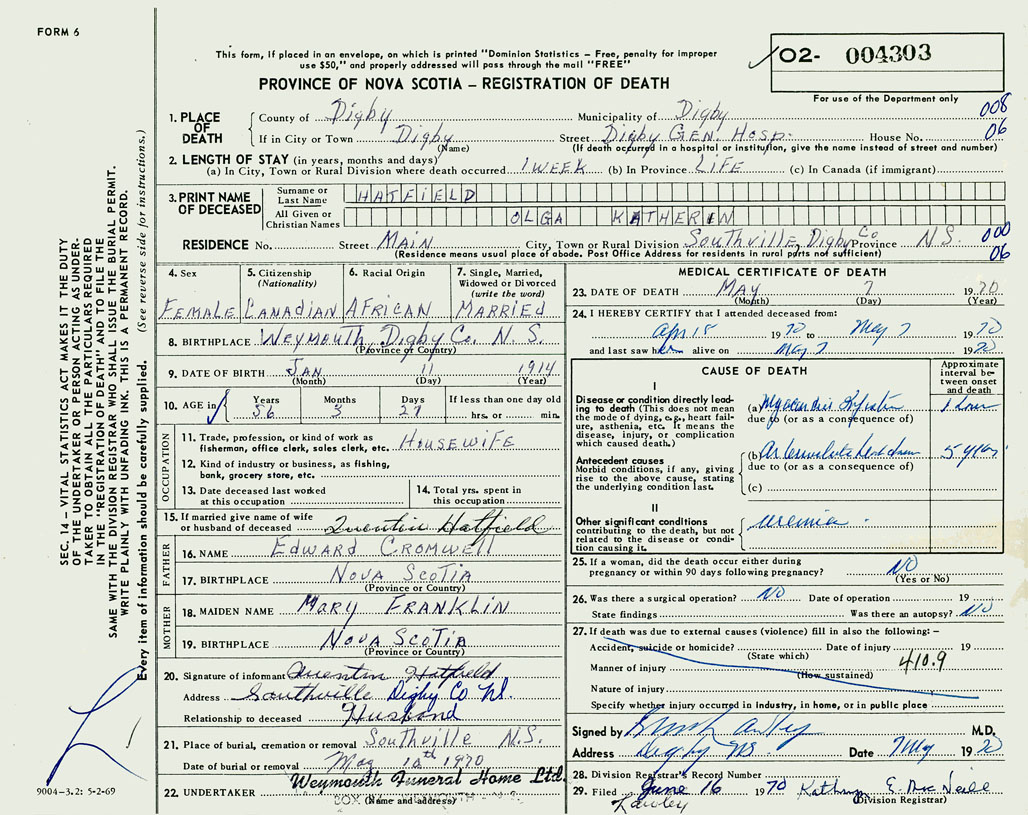 FORM 6
This form, if placed in an envelope, on which is printed "Dominion Statistics – Free, penalty for improper
use $50," and properly addressed will pass through the mail "FREE"
PROVINCE OF NOVA SCOTIA – REGISTRATION OF DEATH
O2- 004303
For use of the Department only
SEC. 14 – VITAL STATISTICS ACT MAKES IT THE DUTY
OF THE UNDERTAKER OR PERSON ACTING AS UNDER-
TAKER TO OBTAIN ALL THE PARTICULARS REQUIRED
IN THE "REGISTRATION OF DEATH" AND TO FILE THE
SAME WITH THE DIVISION REGISTRAR WHO SHALL ISSUE THE BURIAL PERMIT.
WRITE PLAINLY WITH UNFADING INK. THIS IS A PERMANENT RECORD.
Every item of information should be carefully supplied. (See reverse side for instructions.)
1. PLACE OF DEATH
County of Digby Municipality of Digby 008
If in City or Town Digby Street Digby GEN. HOSP. House No. 06
(Name) (If death occurred in a hospital or institution, give the name instead of street and number)
2. LENGTH OF STAY (in years, months and days)
(a) In City, Town or Rural Division where death occurred 1 WEEK (b) In Province LIFE (c) In Canada (if immigrant)
3. PRINT NAME OF DECEASED
Surname or Last Name HATFIELD
All Given or Christian Names OLGA KATHERIN
RESIDENCE No. Street MAIN City, Town or Rural Division Southville, Digby Co Province N.S. 000
(Residence means usual place of abode. Post Office Address for residents in rural parts not sufficient) 06
4. Sex 5. Citizenship (Nationality) 6. Racial Origin 7. Single, Married, Widowed or Divorced (write the word)
FEMALE CANADIAN AFRICAN MARRIED
8. BIRTHPLACE WEYMOUTH Digby Co. N.S.
(Province or Country)
9. DATE OF BIRTH JAN 11 1914
(Month) (Day) (Year)
10. AGE in Years Months Days If less than one day old
56 3 27 hrs. or min.
OCCUPATION
11. Trade, profession, or kind of work as
fisherman, office clerk, sales clerk, etc. HOUSEWIFE
12. Kind of industry or business, as fishing,
bank, grocery store, etc.
13. Date deceased last worked
at this occupation
14. Total yrs. spent in
this occupation
15. If married give name of wife
or husband of deceased Quentin Hatfield
FATHER
16. NAME EDWARD CROMWELL
17. BIRTHPLACE NOVA SCOTIA
(Province or Country)
MOTHER
18. MAIDEN NAME MARY FRANKLIN
19. BIRTHPLACE NOVA SCOTIA
(Province or Country)
20. Signature of informant Quentin Hatfield
Address Southville Digby Co
Relationship to deceased Husband
21. Place of burial, cremation or removal Southville N.S.
Date of burial or removal May 10th 1970
22. UNDERTAKER Weymouth Funeral Home Ltd.
(Name and address)
BOX
9004-3.2: 5-2-69
MEDICAL CERTIFICATE OF DEATH
23. DATE OF DEATH MAY 7 1970
(Month) (Day) (Year)
24. I HEREBY CERTIFY that I attended deceased from:
1970 to May 7 1970
and last saw her alive on May 7 1970
CAUSE OF DEATH
Approximate interval between onset and death
I
Disease or condition directly lead-
ing to death (This does not mean
the mode of dying, e.g., heart fail-
ure, asthenia, etc. It means the
disease, injury, or complication
which caused death.)
(a) 1 hour
due to (or as a consequence of)
Antecedent causes
Morbid conditions, if any, giving
rise to the above cause, stating
the underlying condition last.
(b) 5 years
due to (or as a consequence of)
(c)
II
Other significant conditions
contributing to the death, but not
related to the disease or condi-
tion causing it.
uremia
25. If a woman, did the death occur either during
pregnancy or within 90 days following pregnancy? NO
(Yes or No)
26. Was there a surgical operation? NO Date of operation 19
State findings Was there an autopsy? NO
27. If death was due to external causes (violence) fill in also the following: –
Accident, suicide or homicide? Date of injury 19
(State which)
Manner of injury 410.9
(How sustained)
Nature of injury
Specify whether injury occurred in industry, in home, or in public place
Signed by M.D.
Address Digby NS. Date 7 May 1970
28. Division Registrar's Record Number
29. Filed June 16 1970 E. Mac Neill
(Division Registrar)